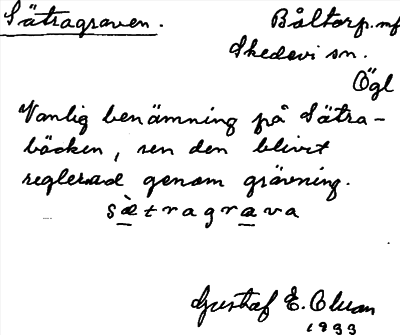 Sätragraven.
Båltorp. mf
Skedevi sn.
Ögl
Vanlig benämning på Sätra-
bäcken, sen den blivit
reglerad genom grävning.
sæ̀tragrava
Gustaf E. Olsson
1933